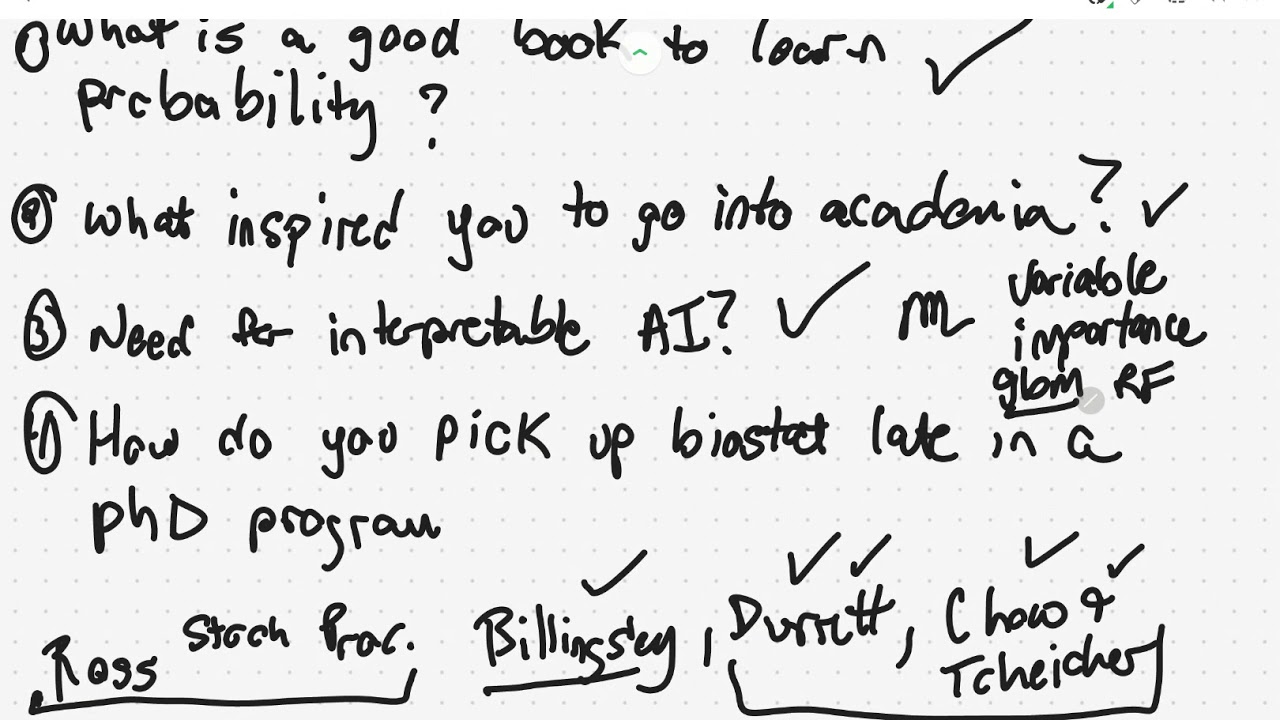 ① What is a good book to learn
probability?
② What inspired you to go into academia?
③ Need for interpretable AI?
variable
importance
gbm RF
④ How do you pick up biostat late in a
phD program
Ross Stoch Proc. Billingsley, Durrett, Chow &
Tcheicher